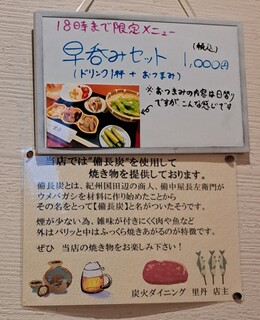 18時まで限定メニュー
早呑みセット (税込) 1,000円
(ドリンク1杯 + おつまみ)
※おつまみの内容は日替り
ですが こんな感じです
当店では"備長炭"を使用して
焼き物を提供しております。
備長炭とは、紀州国田辺の商人、備中屋長左衛門が
ウメバガシを材料に作り始めたことから
その名をとって【備長炭】と名がついたそうです。
煙が少ない為、雑味が付きにくく肉や魚など
外はパリッと中はふっくら焼きあがるのが特徴です。
ぜひ 当店の焼き物をお楽しみ下さい!
炭火ダイニング 里丹 店主